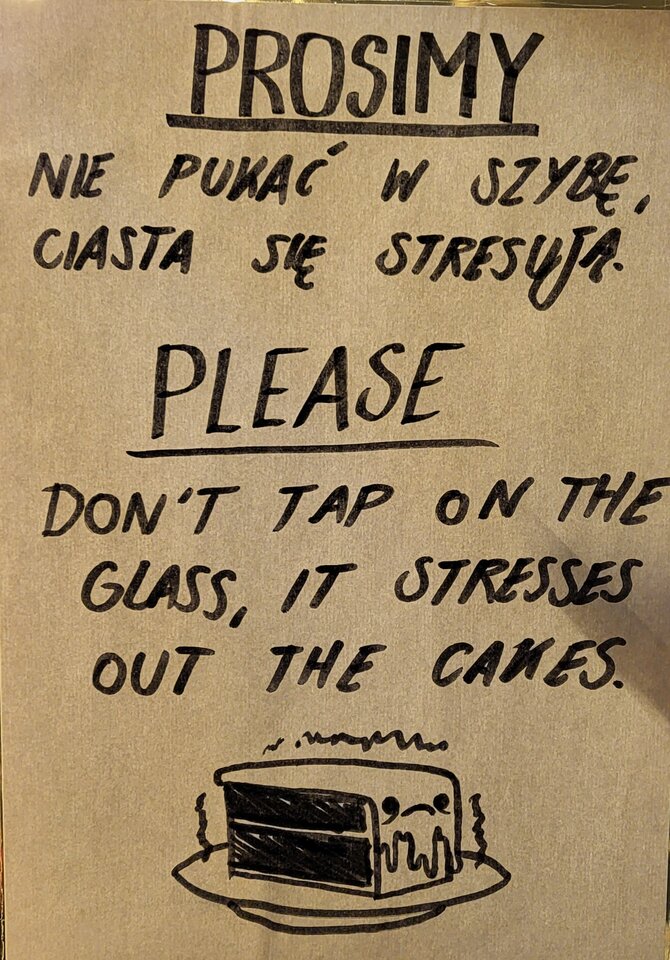 PROSIMY
NIE PUKAĆ W SZYBĘ,
CIASTA SIĘ STRESUJĄ.
PLEASE
DON'T TAP ON THE
GLASS, IT STRESSES
OUT THE CAKES.